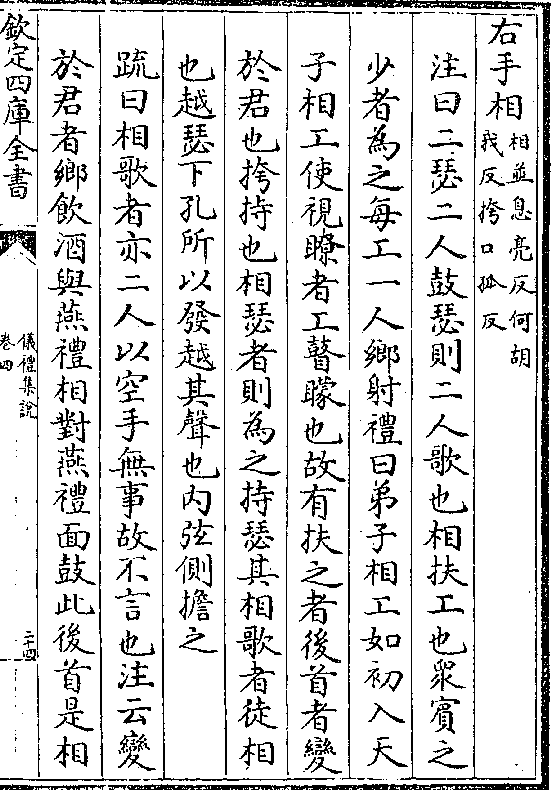 右手相相並息亮反何胡
我反挎口孤反
注曰二瑟二人鼓瑟則二人歌也相扶工也衆賓之
少者為之每工一人鄉射禮曰弟子相工如初入天
子相工使視瞭者工瞽矇也故有扶之者後首者變
於君也挎持也相瑟者則為之持瑟其相歌者徒相
也越瑟下孔所以發越其聲也内弦側擔之
疏曰相歌者亦二人以空手無事故不言也注云變
於君者鄉飲酒與燕禮相對燕禮面鼓此後首是相
欽定四庫全書
儀禮集說
卷四
二十四